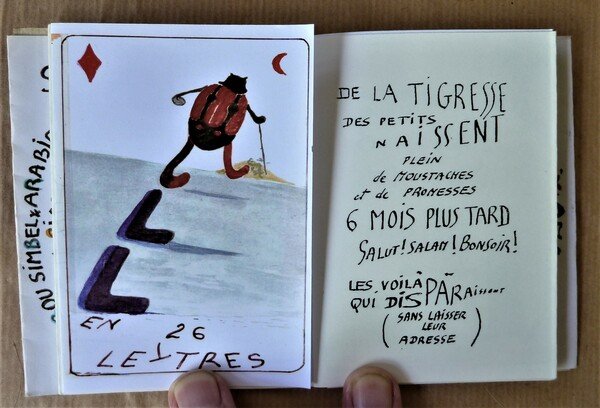 OU SIMBEL x ARABI
L
L
EN 26
LETTRES
DE LA TIGRESSE
DES PETITS
NAISSENT
PLEIN
de MOUSTACHES
et de PROMESSES
6 MOIS PLUS TARD
SALUT! SALAM! BONSOIR!
LES VOILÀ
QUI DISPARAissent
(SANS LAISSER
LEUR
ADRESSE)